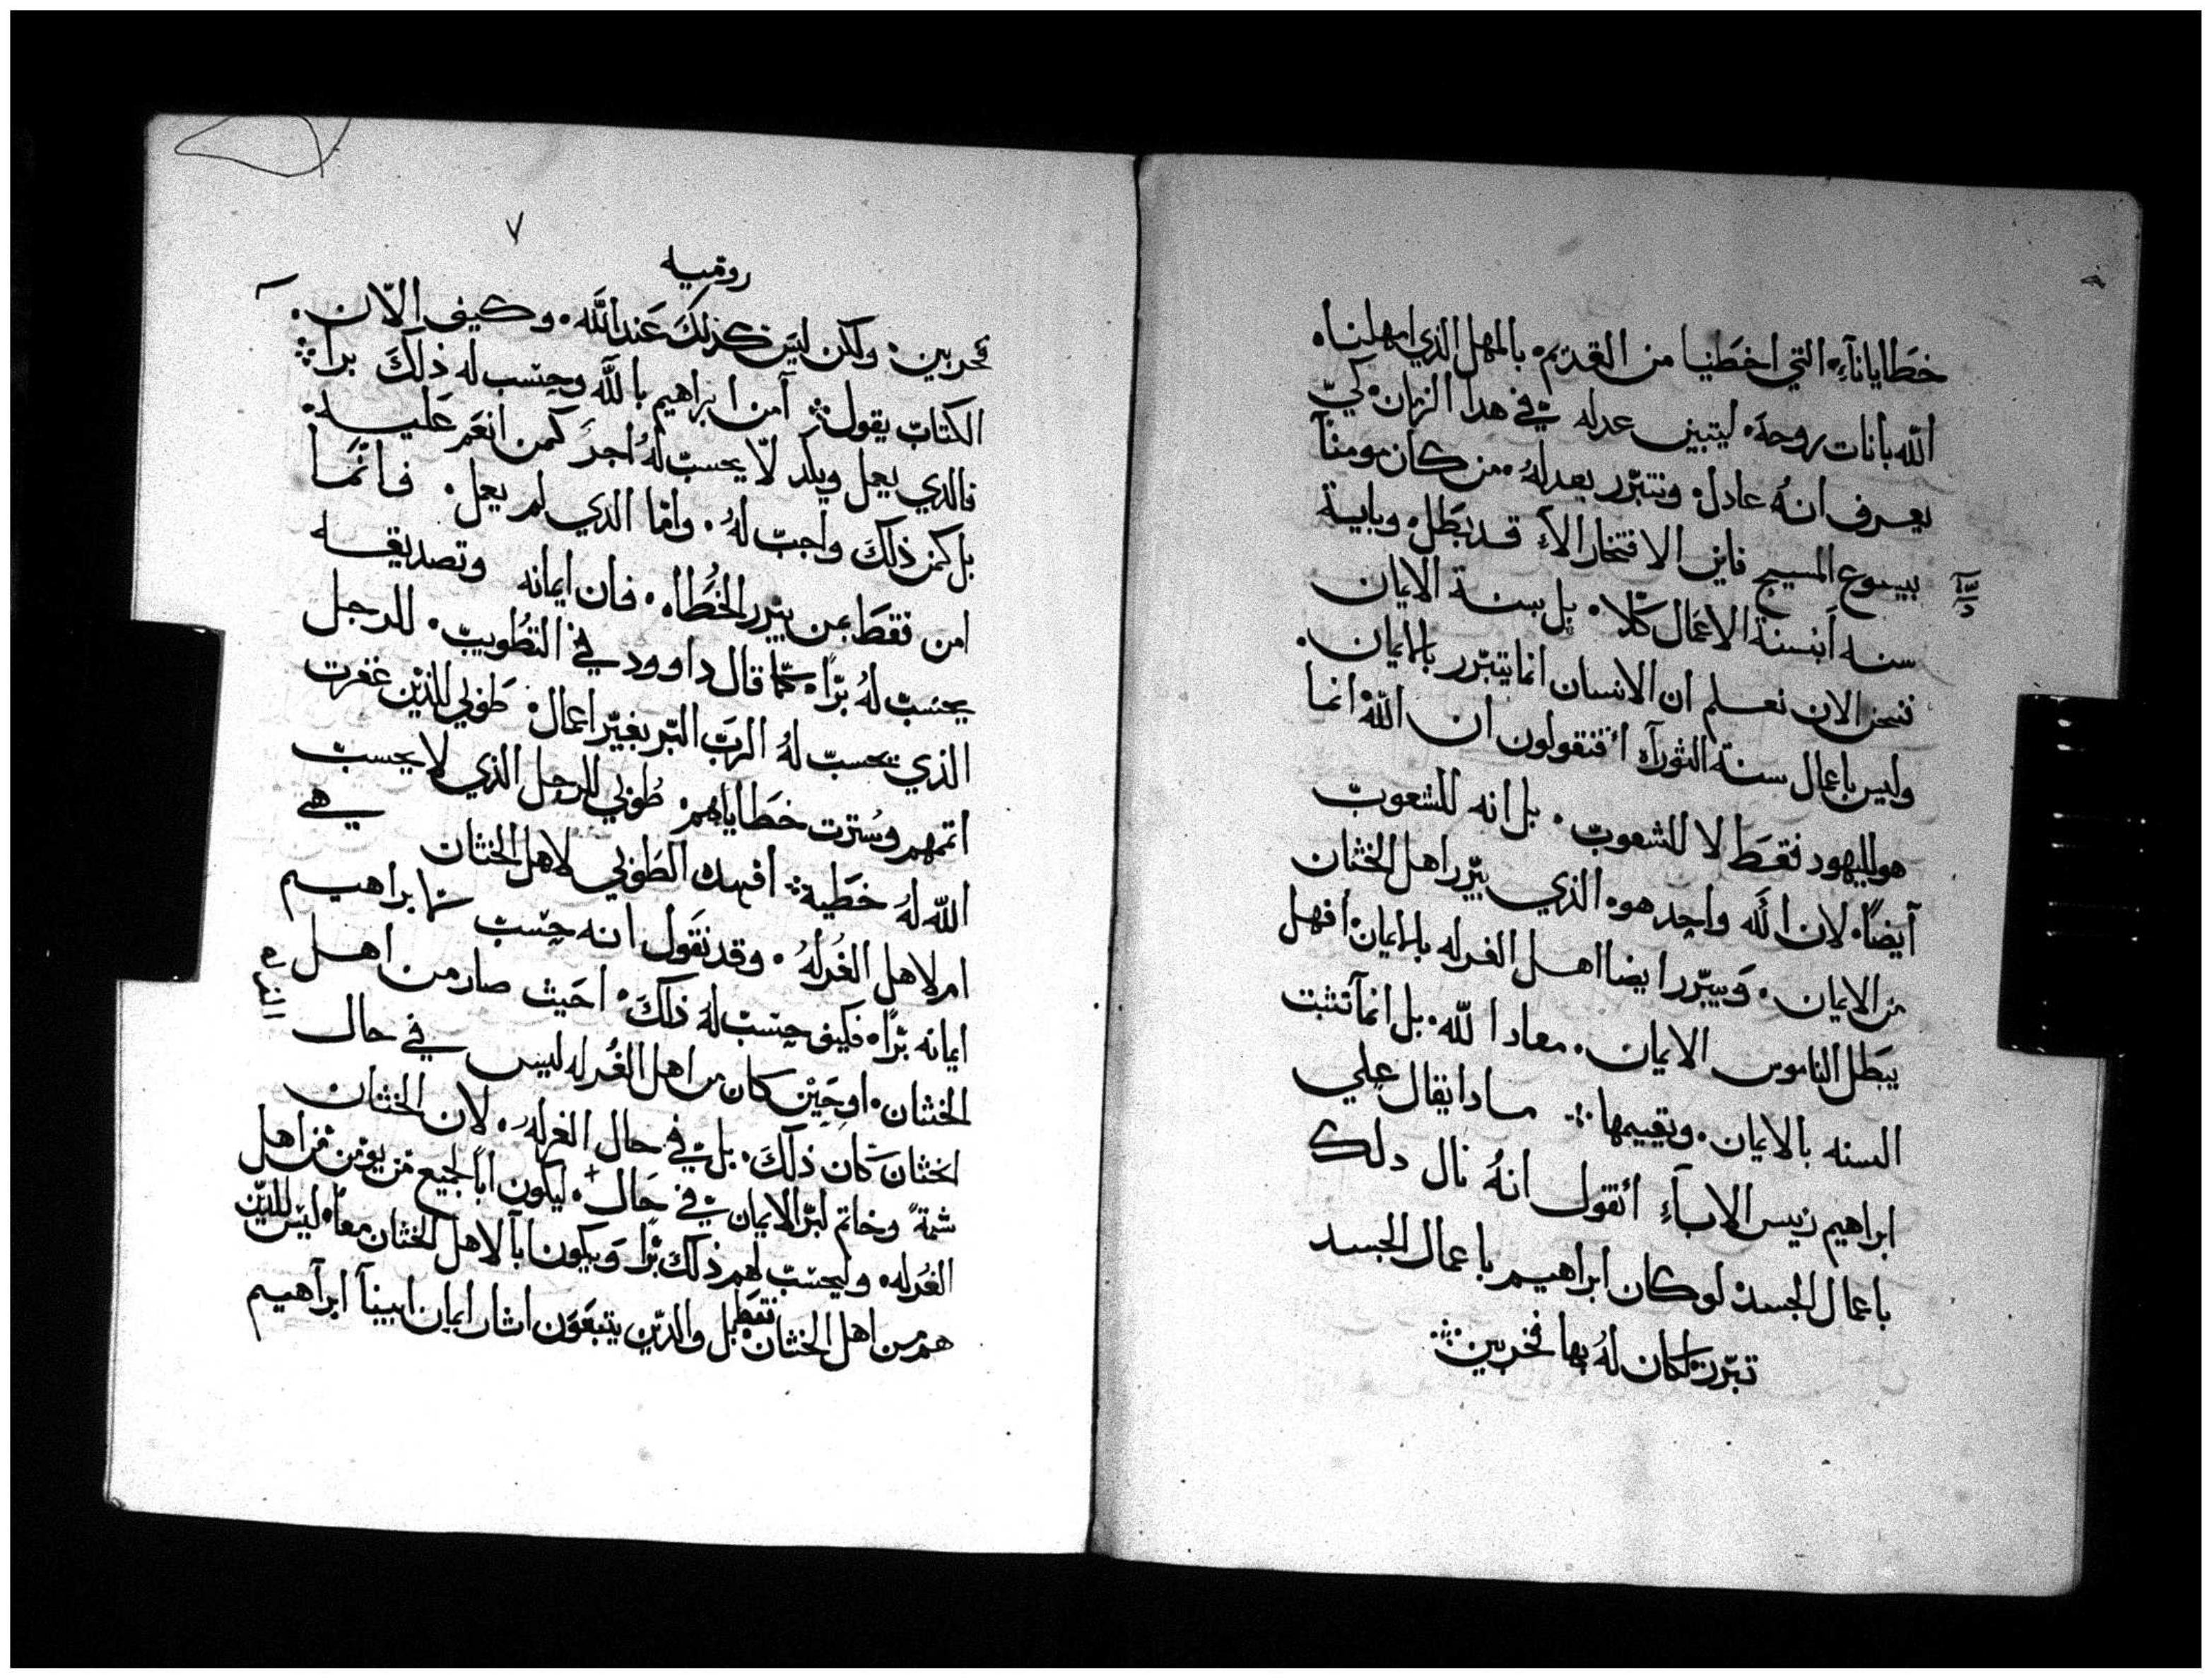 خطايانآء التي اخطينا من القديم. بالمهل الذي امهلناه
الله بانات روحه. ليتبين عدله في هدا الزمان. كيّ
يعرف انهُ عادل. ونتبرّر بعدلهُ. من كان مومناً
بيسوع المسيح فاين الافتخار الآء قد بَطَل. وباية
سنه أبسنة الاعمال كلّا. بل بسنة الايمان
فنحن الان نعلم ان الانسان انما يتبرّر بالايمان.
وليس باعمال سنة التوراه أفتقولون ان اللّه انما
هو لليهود فقط لا للشعوب. بل انه للشعوبّ
آيضاً. لان الله واحد هو. الذي يبّرر اهل الختان
من الايمان. وَيبّرر ايضا اهل الغرله بالايمان. أفهل
يبَطل الناموس الايمان. معادا للّه. بل انمآ نثبت
السنه بالايمان. ونقيمها ⁘ مادا يقال علي
ابراهيم رييس الابآءِ أتقول انهُ نال دلك
باعمال الجسد. لو كان ابراهيم باعمال الجسد
تبّرر. لكان لهُ بها فخر بين ⁘
٧
روميه
فخر بين. ولكن ليَس كذلكَ عَند اللَّه. وكيف الاّن.
الكتابّ يقول ⁘ آمن ابراهيم باللَّه وحسب له ذلكَ براً ⁘
فالدي يعمل ويكد لاّ يحسبّ لهُ اجرَ كمن انعَم عَليه.
بل كمن ذلكَ واجبّ لهُ. وامّا الدي لم يعمل. فانّما
امن فقطَ بمن يبّرر الخُطَاه. فان ايمانه وتصديقه
يحسبّ لهُ برّاً. كمّا قال داوود في التطُويبّ. للرجل
الذي يحسبّ لهُ الربّ البّر بغيّر اعمال. طَوبي للذيّن غفرت
اتمهم وسُترت خطَاياهم. طُوبي للرجل الذي لا يحسبّ
اللّه لهُ خطَية ⁘ افهده الطَوبي لاهل الختان هي
ام لاهل الغُرلهُ. وقد نقَول انه حسبّ لابراهيم
ايمانه برّاً. فكيف حسبّ لهُ ذلكَ. احَيث صار من اهل
الختان. اوحَيْن كان من اهل الغُرله ليس في حال
اختتان كان ذلكَ. بل في حال الغرلهُ. لان الختان
سمةً وخاتم لبّر الايمان في حَال. ليكون اباً لجميع من يومن من اهل
الغُرله. وليحسبّ لهم ذلكَ برّاً وَيكون اباً لاهل الختان معاً. ليسَ للذيّن
هم من اهل الختان فقَط بل والديّن يتبعَوَن اثار ايمان ابيناً ابرآهيم